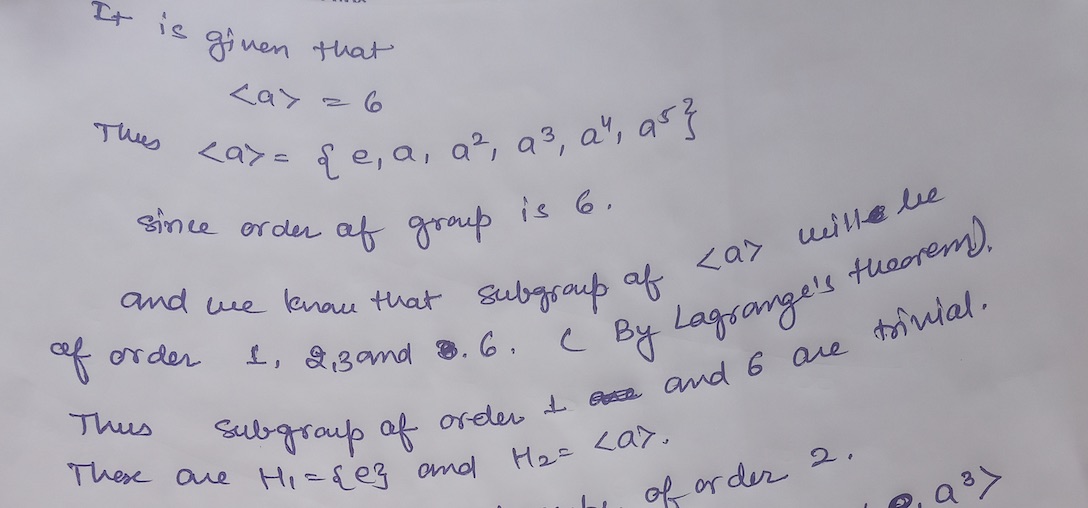 It is given that
<a> = 6
Thus <a> = { e, a, a², a³, a⁴, a⁵}
since order of group is 6.
and we know that subgroup of <a> will be
of order 1, 2, 3 and 6. ( By Lagrange's theorem).
Thus subgroup of order 1 and 6 are trivial.
These are H₁ = {e} and H₂ = <a>.
of order 2.
, a³>